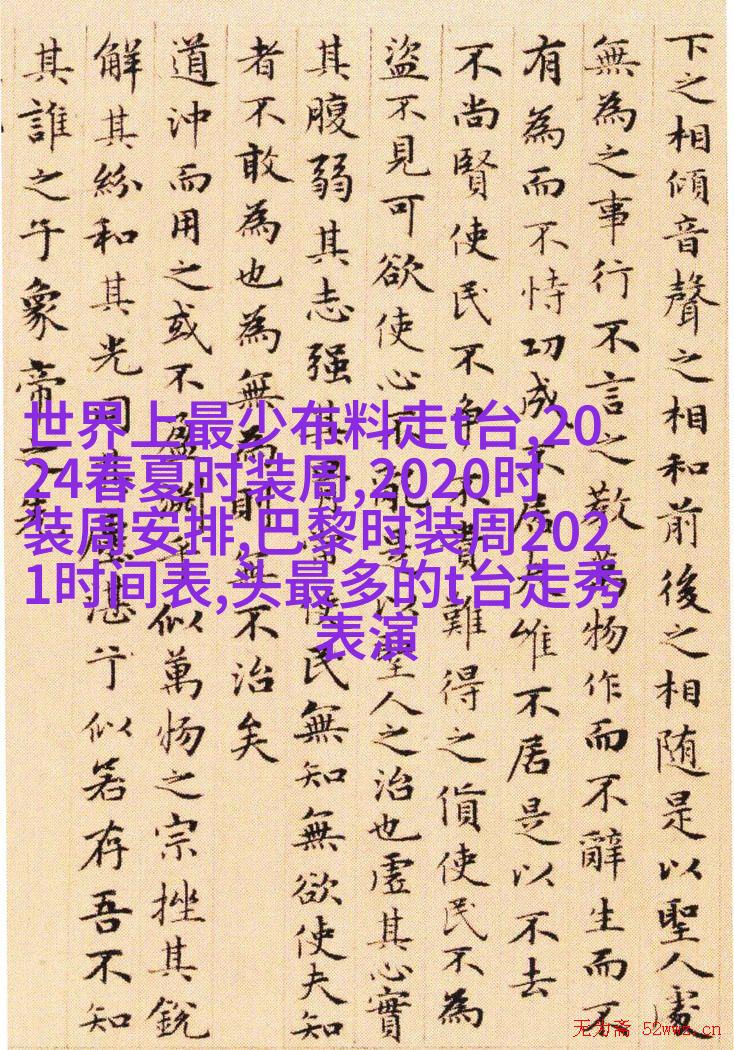 下之相傾音聲之相和前後之相随是以聖人處
無為之事行不言之教萬物作而不辭生而不
有為而不恃功成不居夫惟不居是以不去
不尚賢使民不争不貴難得之貨使民不為
盜不見可欲使心不亂是以聖人之治也虛其心實
其腹弱其志强其骨常使民無知無欲使夫知
者不敢為也為無為則無不治矣
道沖而用之或不盈淵乎似萬物之宗挫其銳
解其紛和其光同其塵湛兮似若存吾不知
其誰之子象帝之先
世界上最少布料走t台,20
24春夏时装周,2020时
装周安排,巴黎时装周202
1时间表,头最多的t台走秀
表演
无为斋 52wwz.cn